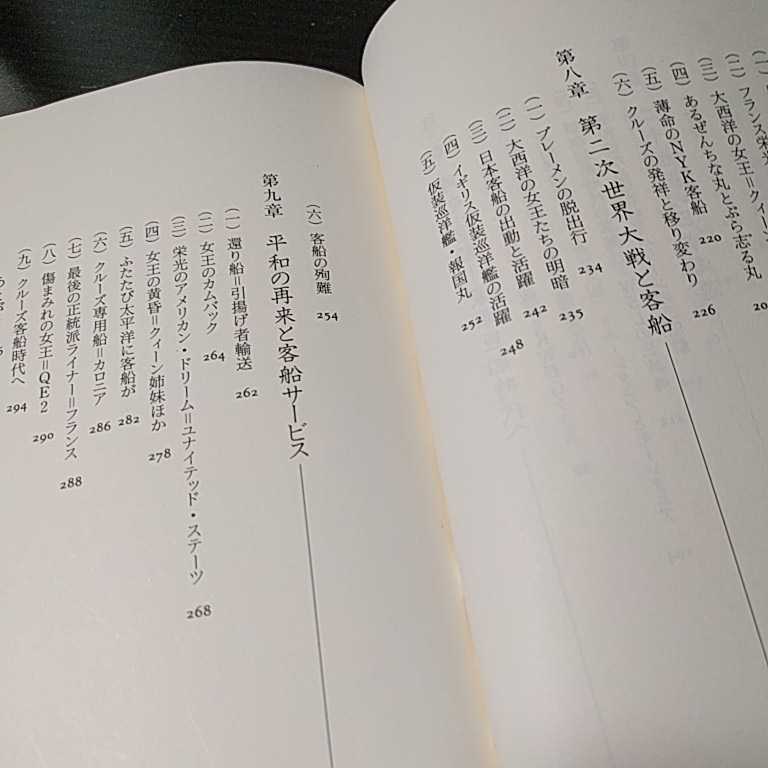 フランス栄光
(三) 大西洋の女王=クィーン
(四) あるぜんちな丸とぶら志る丸
(五) 薄命のNYK客船 220
(六) クルーズの発祥と移り変わり 226
第八章 第二次世界大戦と客船
(一) ブレーメンの脱出行 234
(二) 大西洋の女王たちの明暗 235
(三) 日本客船の出動と活躍 242
(四) イギリス仮装巡洋艦の活躍 248
(五) 仮装巡洋艦・報国丸 252
(六) 客船の殉難 254
第九章 平和の再来と客船サービス
(一) 還り船=引揚げ者輸送 262
(二) 女王のカムバック 264
(三) 栄光のアメリカン・ドリーム=ユナイテッド・ステーツ 268
(四) 女王の黄昏=クィーン姉妹ほか 278
(五) ふたたび太平洋に客船が 282
(六) クルーズ専用船=カロニア 286
(七) 最後の正統派ライナー=フランス 288
(八) 傷まみれの女王=QE2 290
(九) クルーズ客船時代へ 294